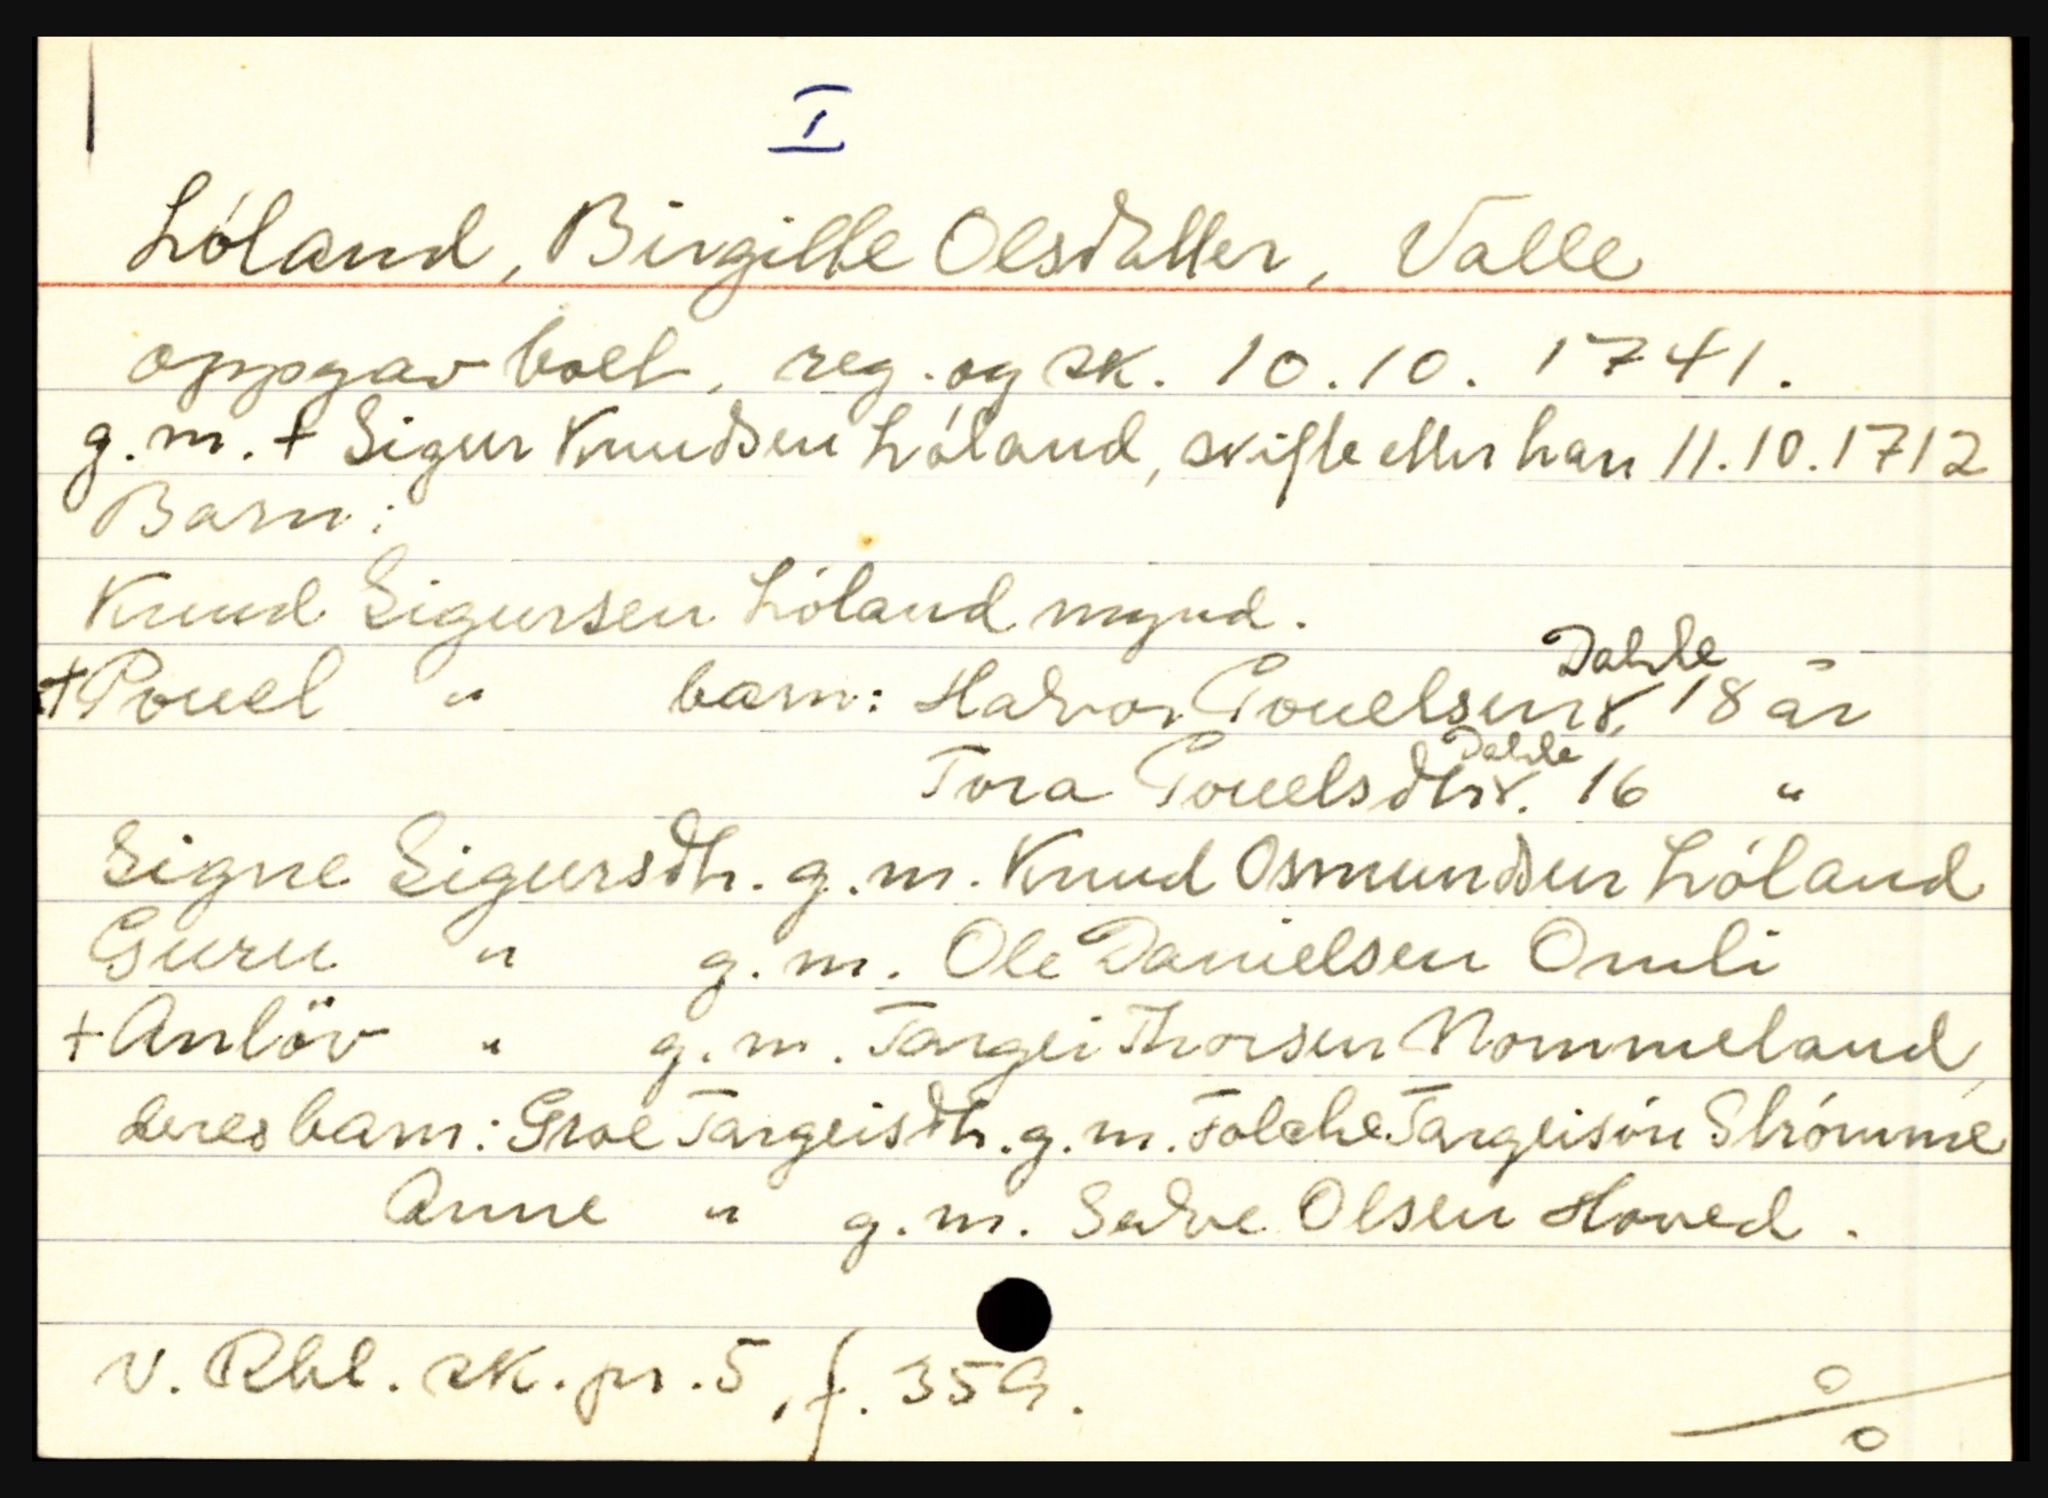 I
Lóland, Birgitte Olsdatter, Valle
oppgav boet, reg. og sk. 10.10.1741.
g.m. + Sigur Knudsen Lóland, skifte etter han 11.10.1712
Barn:
Knud Sigursen Lóland mynd.
+Pouel " barn: Halvor Pouelsen Dahle, 18 år
Tora Pouelsdtr. Dahle 16 "
Signe Sigursdtr. g.m. Knud Osmundsen Lóland
Guru " g.m. Ole Danielsen Omli
+Anlöv " g.m. Targei Thorsen Nommeland,
deres barn: Groe Targeisdtr. g.m. Folche Targeisón Strómme
Anne " g.m. Salve Olsen Hoved.
V. Rbl. sk. pr. 5, f. 359.
0/0